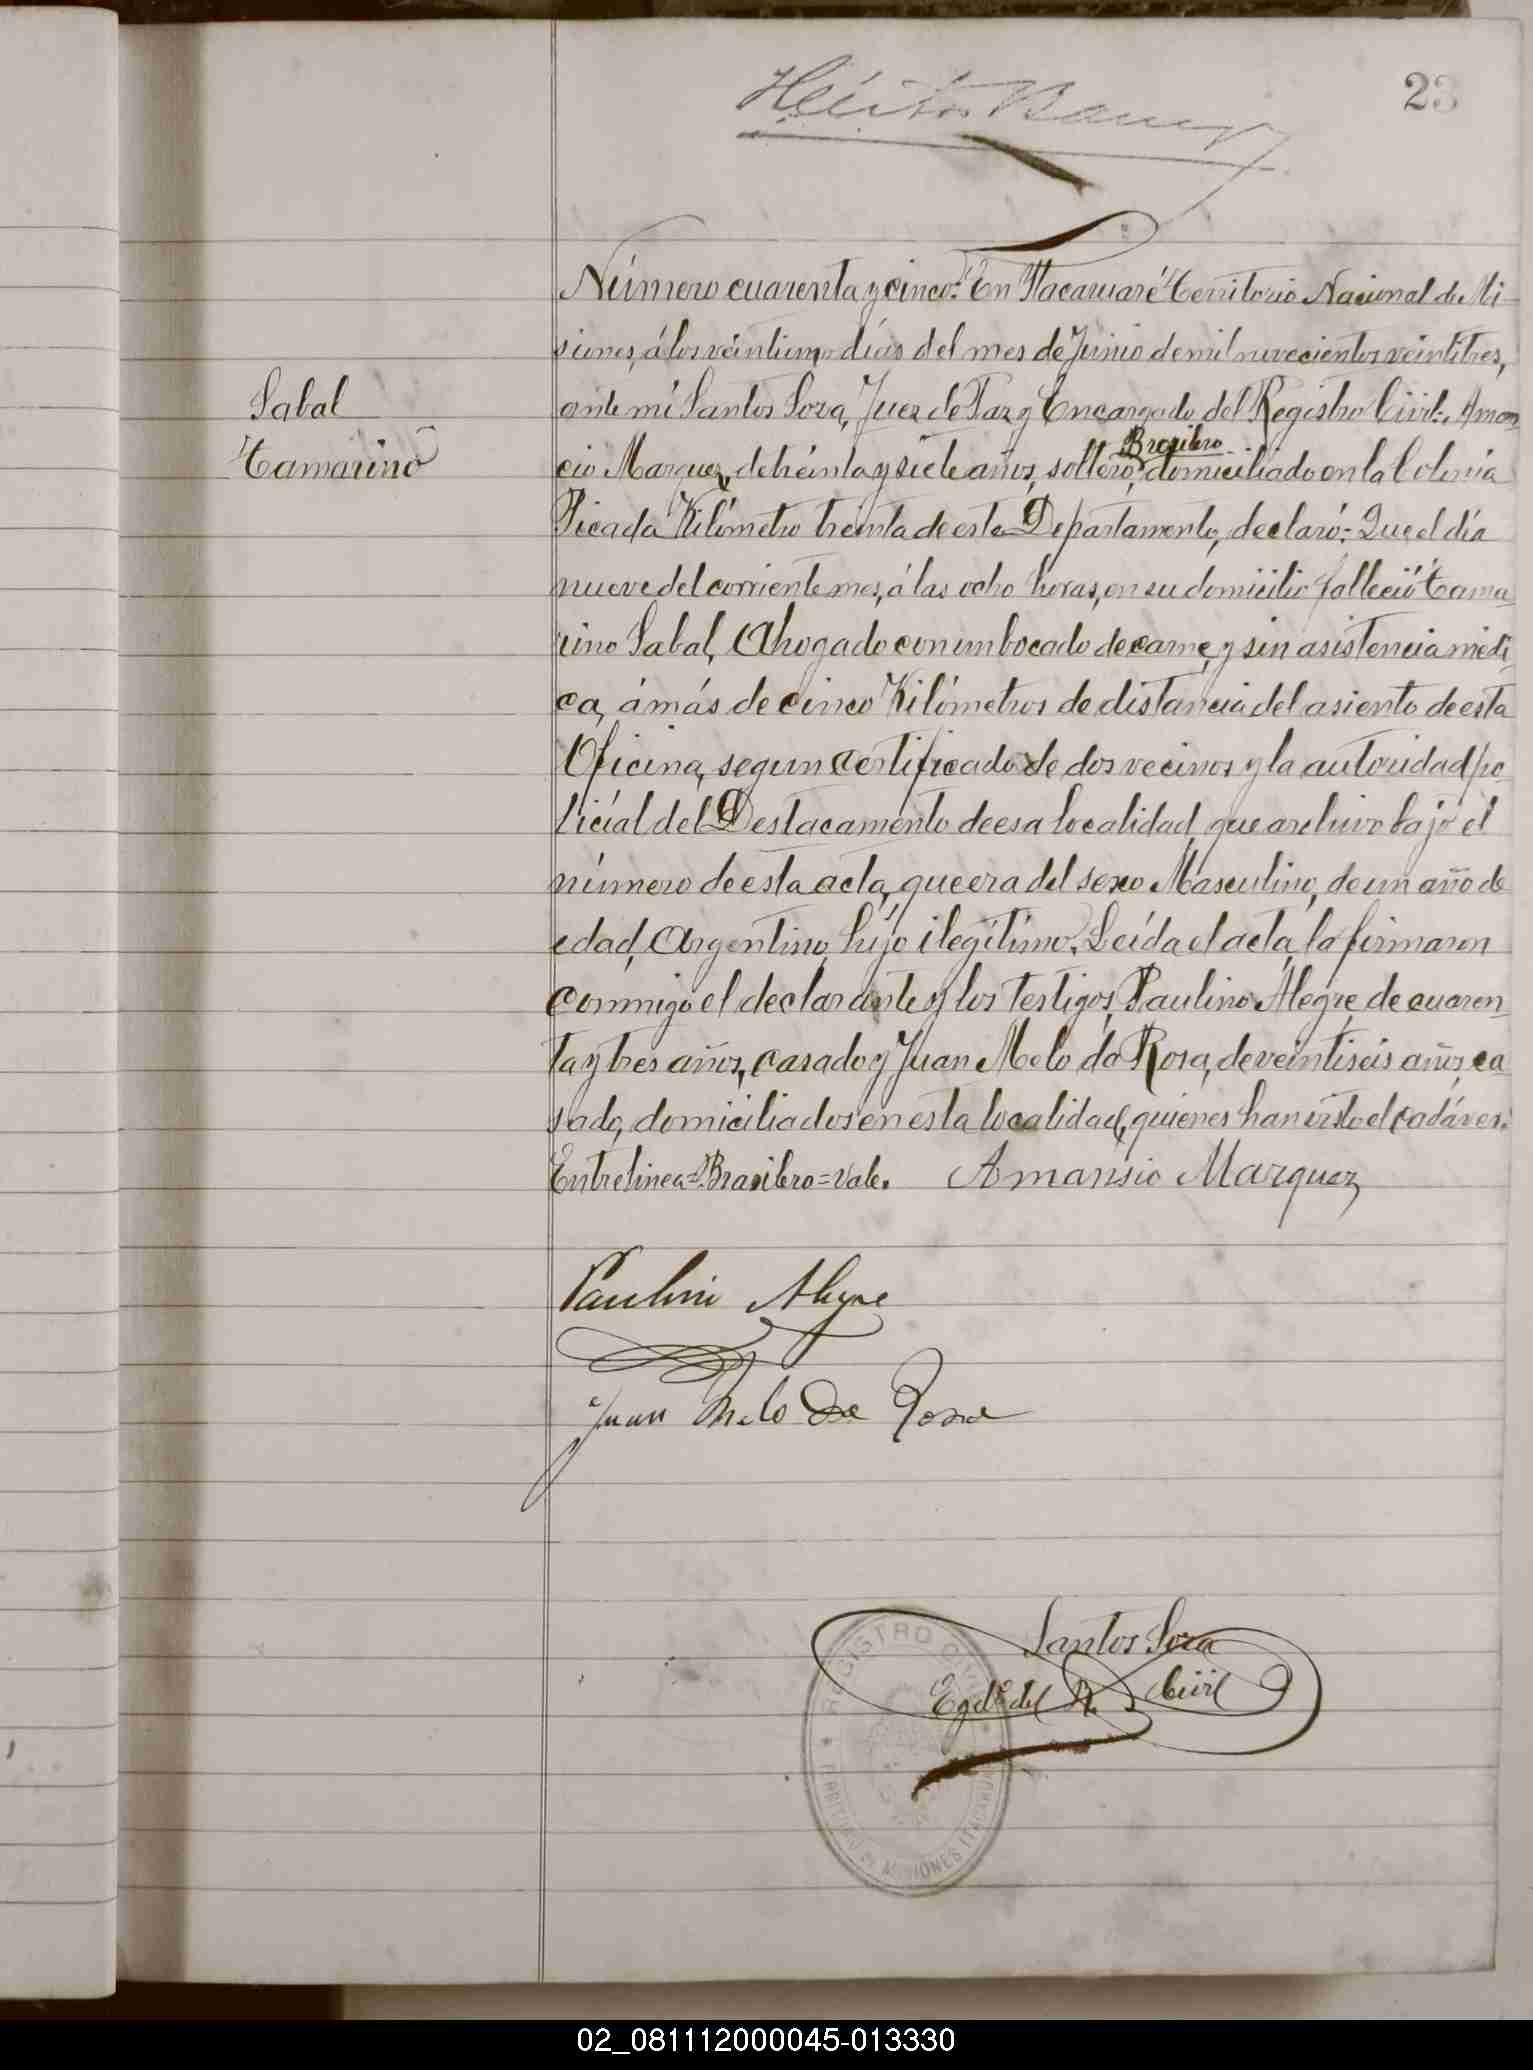 23
Número cuarenta y cinco: En Itacaruaré Territorio Nacional de Mi-
siones, á los veintiun días del mes de Junio de mil novecientos veintitres,
Sabal
Tamarino
ante mí Santos Soza, Juez de Paz y Encargado del Registro Civil: Aman
cio Marquez, de treinta y siete años, soltero, Brasilero domiciliado en la Colonia
Picada Kilómetro treinta de este Departamento, declaró: Que el día
nueve del corriente mes, á las ocho horas, en su domicilio falleció Tama-
rino Sabal, Ahogado con un bocado de carne, y sin asistencia médi-
ca, á más de cinco Kilómetros de distancia del asiento de esta
Oficina, segun certificado de dos vecinos y la autoridad po-
licial del Destacamento de esa localidad, que archivo bajo el
número de esta acta, que era del sexo Masculino, de un año de
edad, Argentino, hijo ilegítimo. Leída el acta, la firmaron
conmigo el declarante y los testigos, Paulino Alegre, de cuaren-
ta y tres años, casado y Juan Melo da Rosa, de veintiseis años, ca
sado, domiciliados en esta localidad, quienes han visto el cadáver.
Entrelinea=Brasilero=vale. Amansio Marquez
Paulino Alegre
Juan Melo Da Rosa
Santos Soza
Egdo del R. Civil
REGISTRO CIVIL
TERRITORIO DE MISIONES ITACARUARÉ
02_081112000045-013330